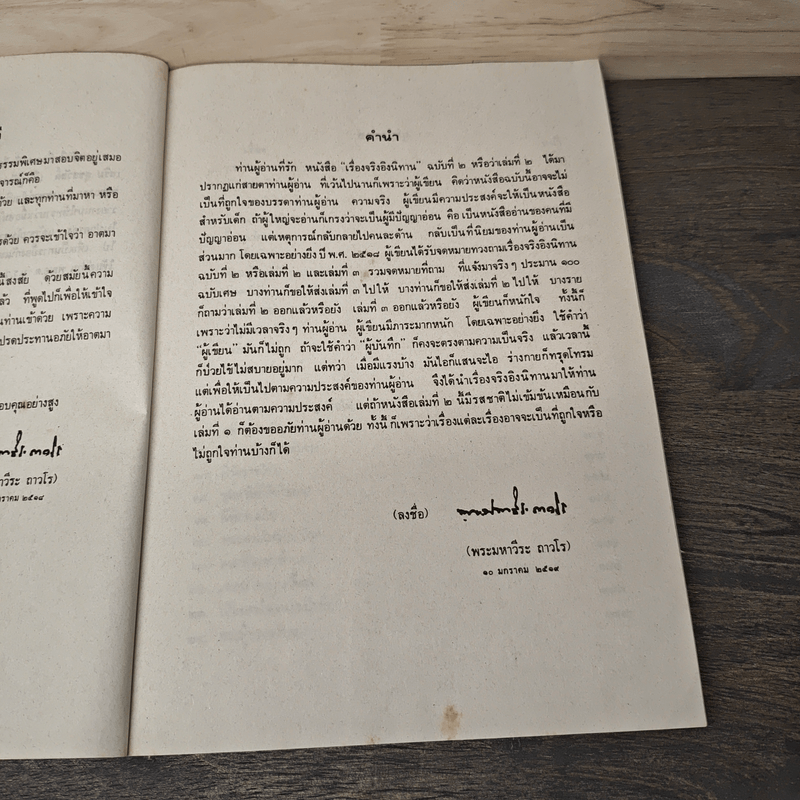 ธรรมพิเศษมาสอบจิตอยู่เสมอ
จารณ์ก็คือ
ด้วย และทุกท่านที่มาหา หรือ
รด้วย ควรจะเข้าใจว่า อาตมา
นี้สงสัย ด้วยสมัยนี้ความ
ล้ว ที่พูดไปก็เพื่อให้เข้าใจ
นท่านเข้าด้วย เพราะความ
ปรดประทานอภัยให้อาตมา
อบคุณอย่างสูง
าวีระ ถาวโร)
กราคม ๒๕๑๘
คำนำ
ท่านผู้อ่านที่รัก หนังสือ "เรื่องจริงอิงนิทาน" ฉบับที่ ๒ หรือว่าเล่มที่ ๒ ได้มา
ปรากฏแก่สายตาท่านผู้อ่าน ที่เว้นไปนานก็เพราะว่าผู้เขียน คิดว่าหนังสือฉบับนี้อาจจะไม่
เป็นที่ถูกใจของบรรดาท่านผู้อ่าน ความจริง ผู้เขียนมีความประสงค์จะให้เป็นหนังสือ
สำหรับเด็ก ถ้าผู้ใหญ่จะอ่านก็เกรงว่าจะเป็นผู้มีปัญญาอ่อน คือ เป็นหนังสืออ่านของคนที่มี
ปัญญาอ่อน แต่เหตุการณ์กลับกลายไปคนละด้าน กลับเป็นที่นิยมของท่านผู้อ่านเป็น
ส่วนมาก โดยเฉพาะอย่างยิ่ง ปี พ.ศ. ๒๕๑๘ ผู้เขียนได้รับจดหมายทวงถามเรื่องจริงอิงนิทาน
ฉบับที่ ๒ หรือเล่มที่ ๒ และเล่มที่ ๓ รวมจดหมายที่ถาม ที่แจ้งมาจริงๆ ประมาณ ๑๐๐
ฉบับเศษ บางท่านก็ขอให้ส่งเล่มที่ ๓ ไปให้ บางท่านก็ขอให้ส่งเล่มที่ ๒ ไปให้ บางราย
ก็ถามว่าเล่มที่ ๒ ออกแล้วหรือยัง เล่มที่ ๓ ออกแล้วหรือยัง ผู้เขียนก็หนักใจ ทั้งนี้ก็
เพราะว่าไม่มีเวลาจริงๆ ท่านผู้อ่าน ผู้เขียนมีภาระมากหนัก โดยเฉพาะอย่างยิ่ง ใช้คำว่า
"ผู้เขียน" มันก็ไม่ถูก ถ้าจะใช้คำว่า "ผู้บันทึก" ก็คงจะตรงตามความเป็นจริง แล้วเวลานี้
ก็ป่วยไข้ไม่สบายอยู่มาก แต่ทว่า เมื่อมีแรงบ้าง มันไอก็แสนจะไอ ร่างกายก็ทรุดโทรม
แต่เพื่อให้เป็นไปตามความประสงค์ของท่านผู้อ่าน จึงได้นำเรื่องจริงอิงนิทานมาให้ท่าน
ผู้อ่านได้อ่านตามความประสงค์ แต่ถ้าหนังสือเล่มที่ ๒ นี้มีรสชาติไม่เข้มข้นเหมือนกับ
เล่มที่ ๑ ก็ต้องขออภัยท่านผู้อ่านด้วย ทั้งนี้ ก็เพราะว่าเรื่องแต่ละเรื่องอาจจะเป็นที่ถูกใจหรือ
ไม่ถูกใจท่านบ้างก็ได้
(ลงชื่อ)
(พระมหาวีระ ถาวโร)
๑๐ มกราคม ๒๕๑๙